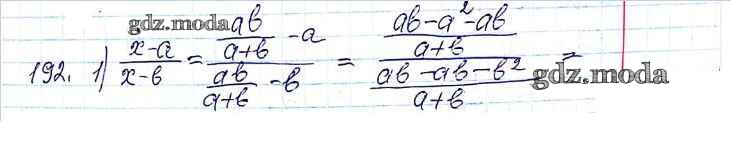 gdz.moda
192. 1) \frac{x-a}{x-b} = \frac{\frac{ab}{a+b} - a}{\frac{ab}{a+b} - b} = \frac{\frac{ab-a^2-ab}{a+b}}{\frac{ab-ab-b^2}{a+b}} =
gdz.moda